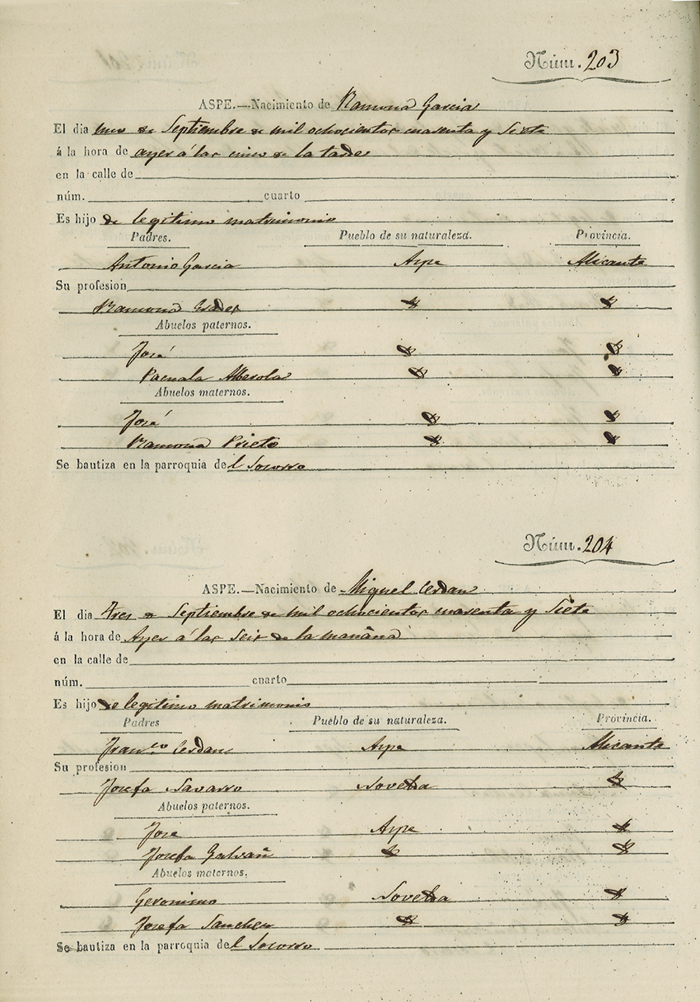 Núm. 203
ASPE.—Nacimiento de Ramona Garcia
El dia uno de Septiembre de mil ochocientos cuarenta y Siete
á la hora de ayer á las cinco de la tarde
en la calle de
núm. cuarto
Es hijo de legitimo matrimonio
Padres. Pueblo de su naturaleza. Provincia.
Antonio Garcia Aspe Alicante
Su profesion
Ramona
Abuelos paternos.
José
Pascuala Alberola
Abuelos maternos.
José
Ramona Prieto
Se bautiza en la parroquia del Socorro
Núm. 204
ASPE.—Nacimiento de Miguel Cerdan
El dia tres de Septiembre de mil ochocientos cuarenta y Siete
á la hora de Ayer á las Seis de la mañana
en la calle de
núm. cuarto
Es hijo de legitimo matrimonio
Padres Pueblo de su naturaleza. Provincia.
Franco Cerdan Aspe Alicante
Su profesion
Josefa Navarro Novelda
Abuelos paternos.
Jose Aspe
Josefa Galvañ
Abuelos maternos.
Geronimo Novelda
Josefa Sanchez
Se bautiza en la parroquia del Socorro